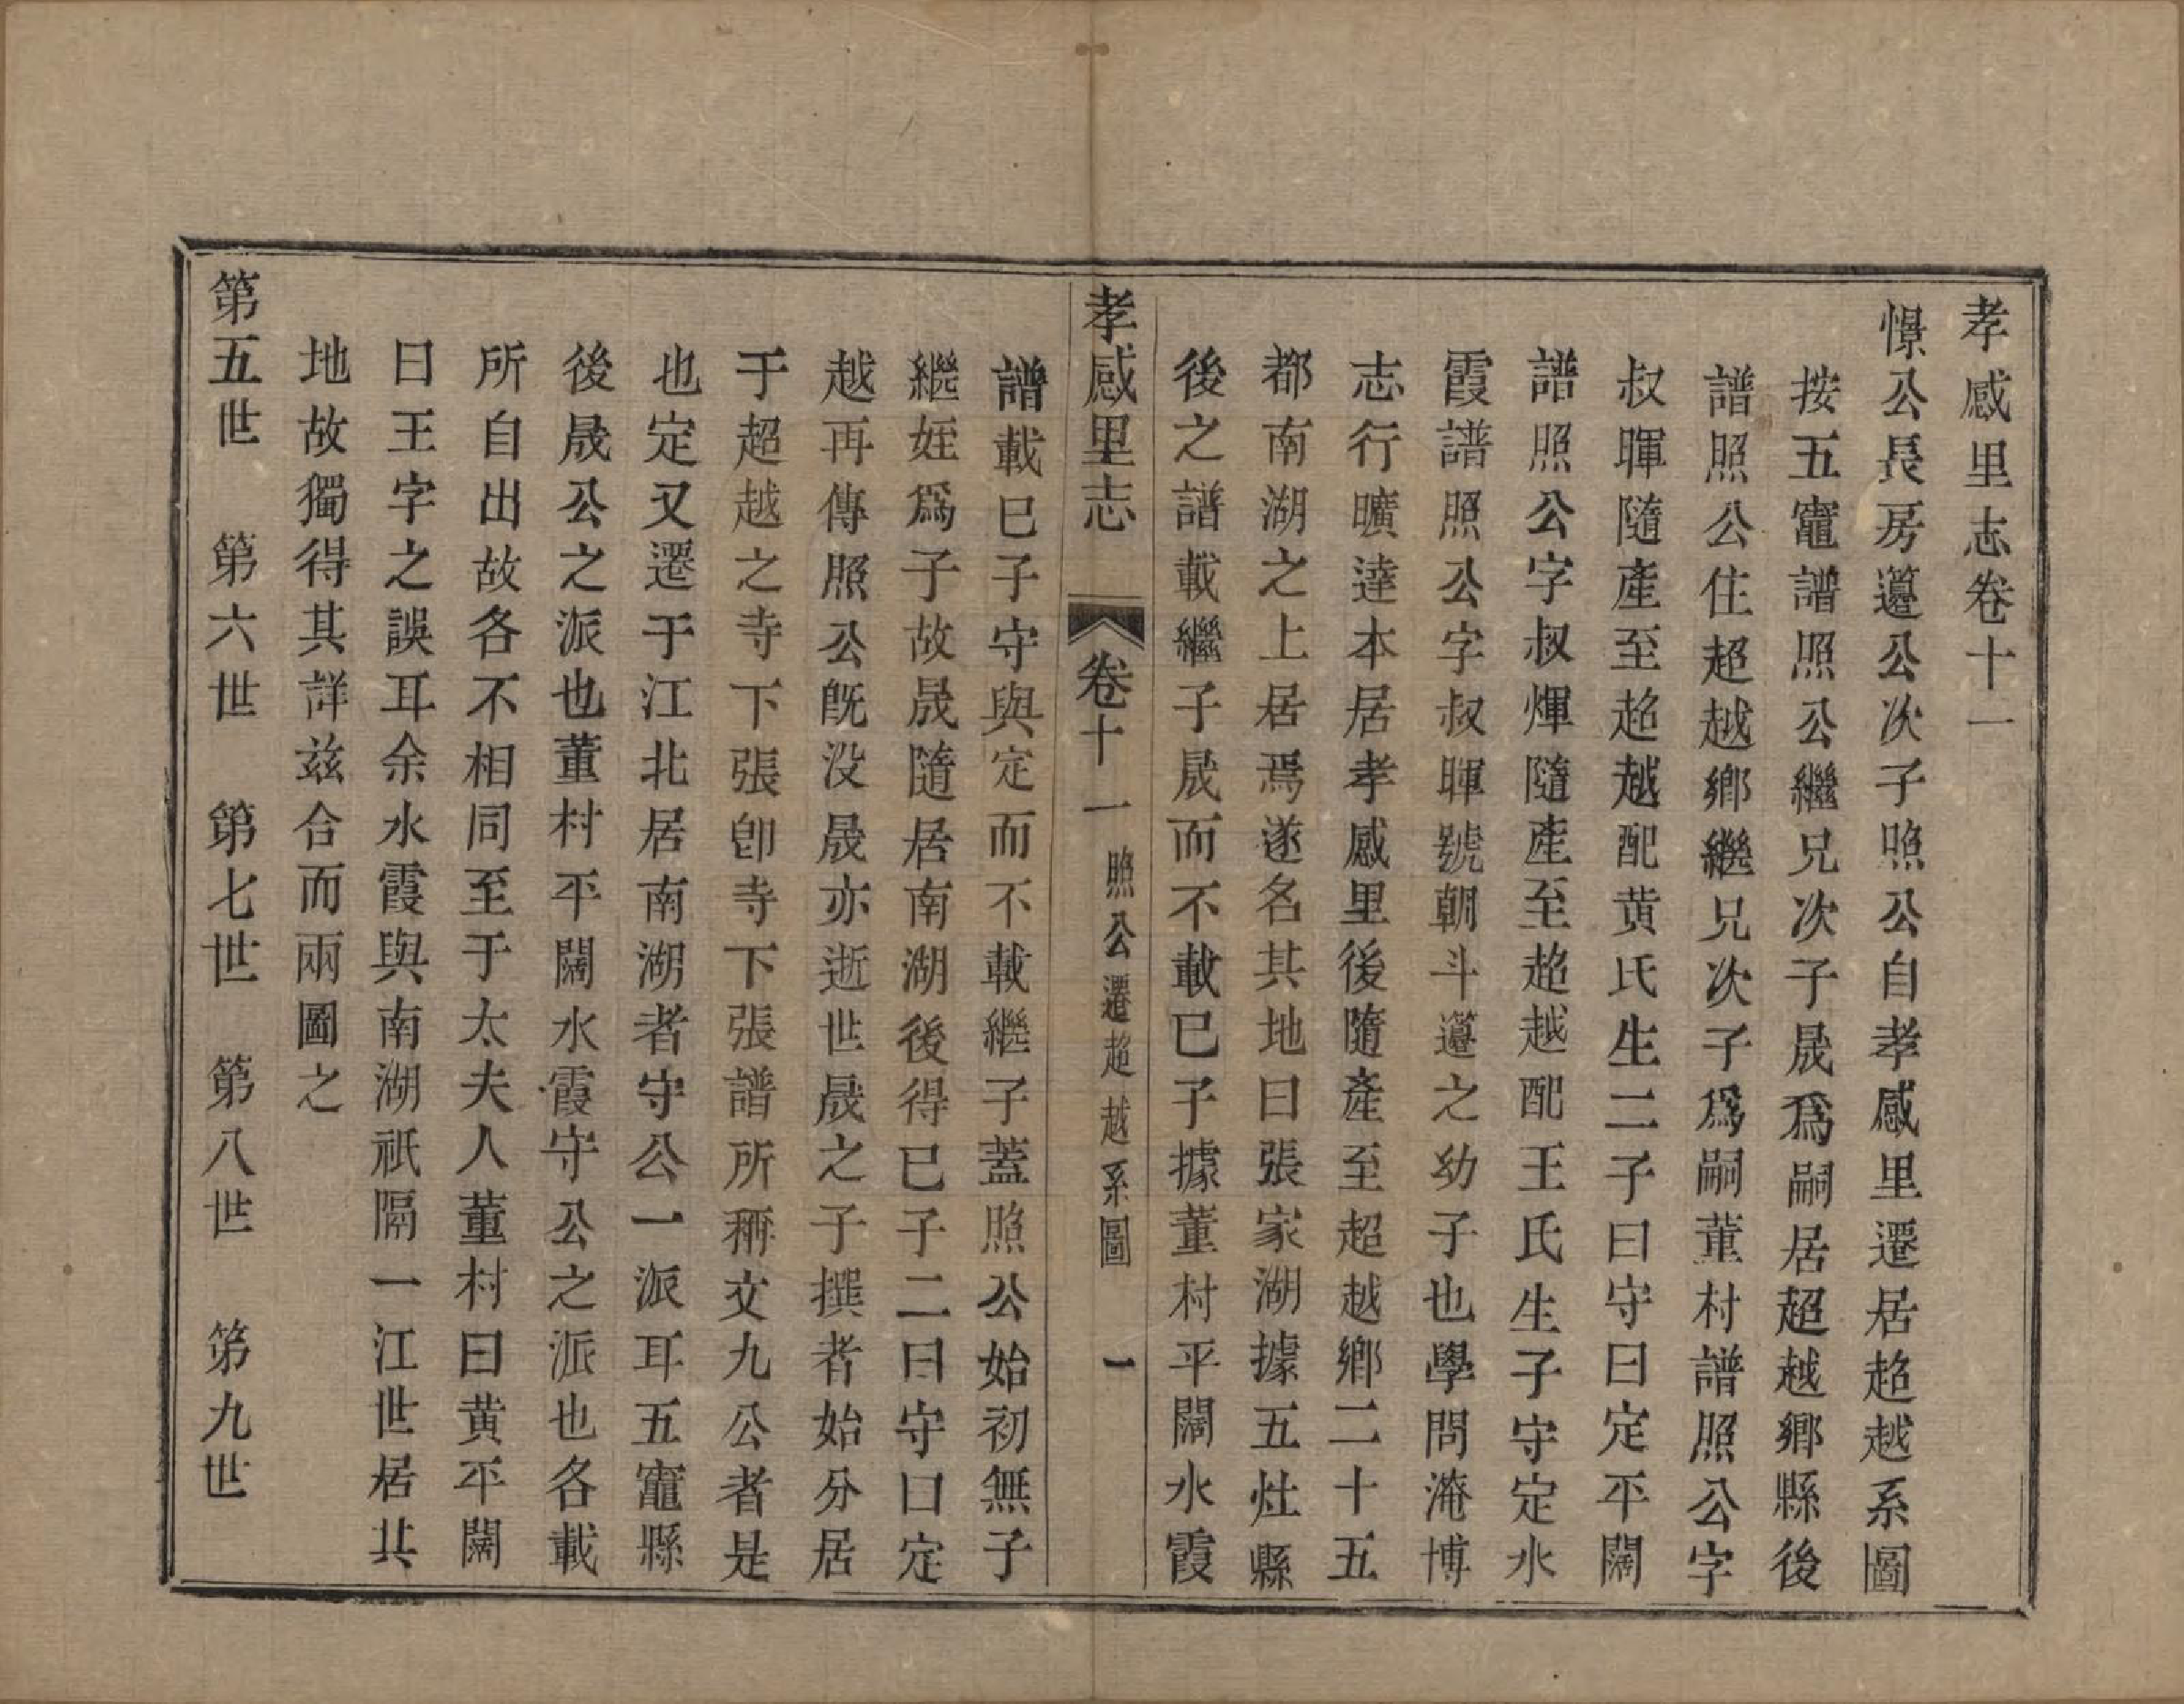 孝感里志卷十一
憬公長房薖公次子照公自孝感里遷居超越系圖
按五竈譜照公繼兄次子晟為嗣居超越鄉縣後
譜照公住超越鄉繼兄次子為嗣董村譜照公字
叔暉隨產至超越配黄氏生二子曰守曰定平闊
譜照公字叔煇隨產至超越配王氏生子守定水
霞譜照公字叔暉號朝斗薖之幼子也學問淹博
志行曠達本居孝感里後隨產至超越鄉二十五
都南湖之上居焉遂名其地曰張家湖據五灶縣
後之譜載繼子晟而不載已子據董村平闊水霞
孝感里志 卷十一 照公遷超越系圖 一
譜載已子守與定而不載繼子蓋照公始初無子
繼姪爲子故晟隨居南湖後得已子二曰守曰定
越再傳照公旣没晟亦逝世晟之子撰者始分居
于超越之寺下張卽寺下張譜所稱文九公者是
也定又遷于江北居南湖者守公一派耳五竈縣
後晟公之派也董村平闊水霞守公之派也各載
所自出故各不相同至于太夫人董村曰黄平闊
曰王字之誤耳余水霞與南湖祇隔一江世居共
地故獨得其詳兹合而兩圖之
第五世 第六世 第七世 第八世 第九世